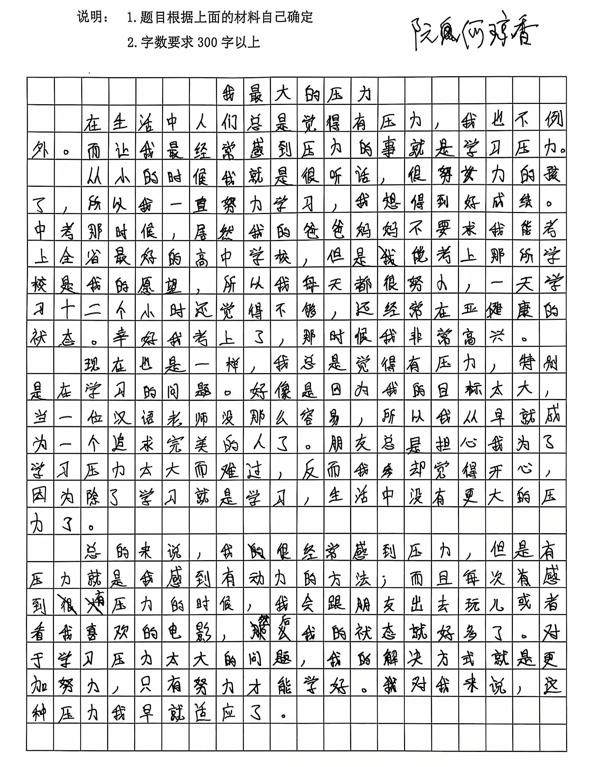 说明： 1.题目根据上面的材料自己确定
2.字数要求 300 字以上
阮 何琼香
我最大的压力
在生活中人们总是觉得有压力，我也不例
外。而让我最经常感到压力的事就是学习压力。
从小的时候我就是很听话，很努力的孩
了，所以我一直努力学习，我想得到好成绩。
中考那时候，居然我的爸爸妈妈不要求我能考
上全省最好的高中学校，但是我能考上那所学
校是我的愿望，所以我每天都很努力，一天学
习十二个小时还觉得不够，还经常在亚健康的
状态。幸好我考上了，那时候我非常高兴。
现在也是一样，我总是觉得有压力，特别
是在学习的问题。好像是因为我的目标太大，
当一位汉语老师没那么容易，所以我从早就成
为一个追求完美的人了。朋友总是担心我为了
学习压力太大而难过，反而我却觉得开心，
因为除了学习就是学习，生活中没有更大的压
力了。
总的来说，我的很经常感到压力，但是有
压力就是我感到有动力的方法；而且每次有感
到有压力的时候，我会跟朋友出去玩儿或者
看我喜欢的电影，然后我的状态就好多了。对
于学习压力太大的问题，我的解决方式就是更
加努力，只有努力才能学好。我对我来说，这
种压力我早就适应了。